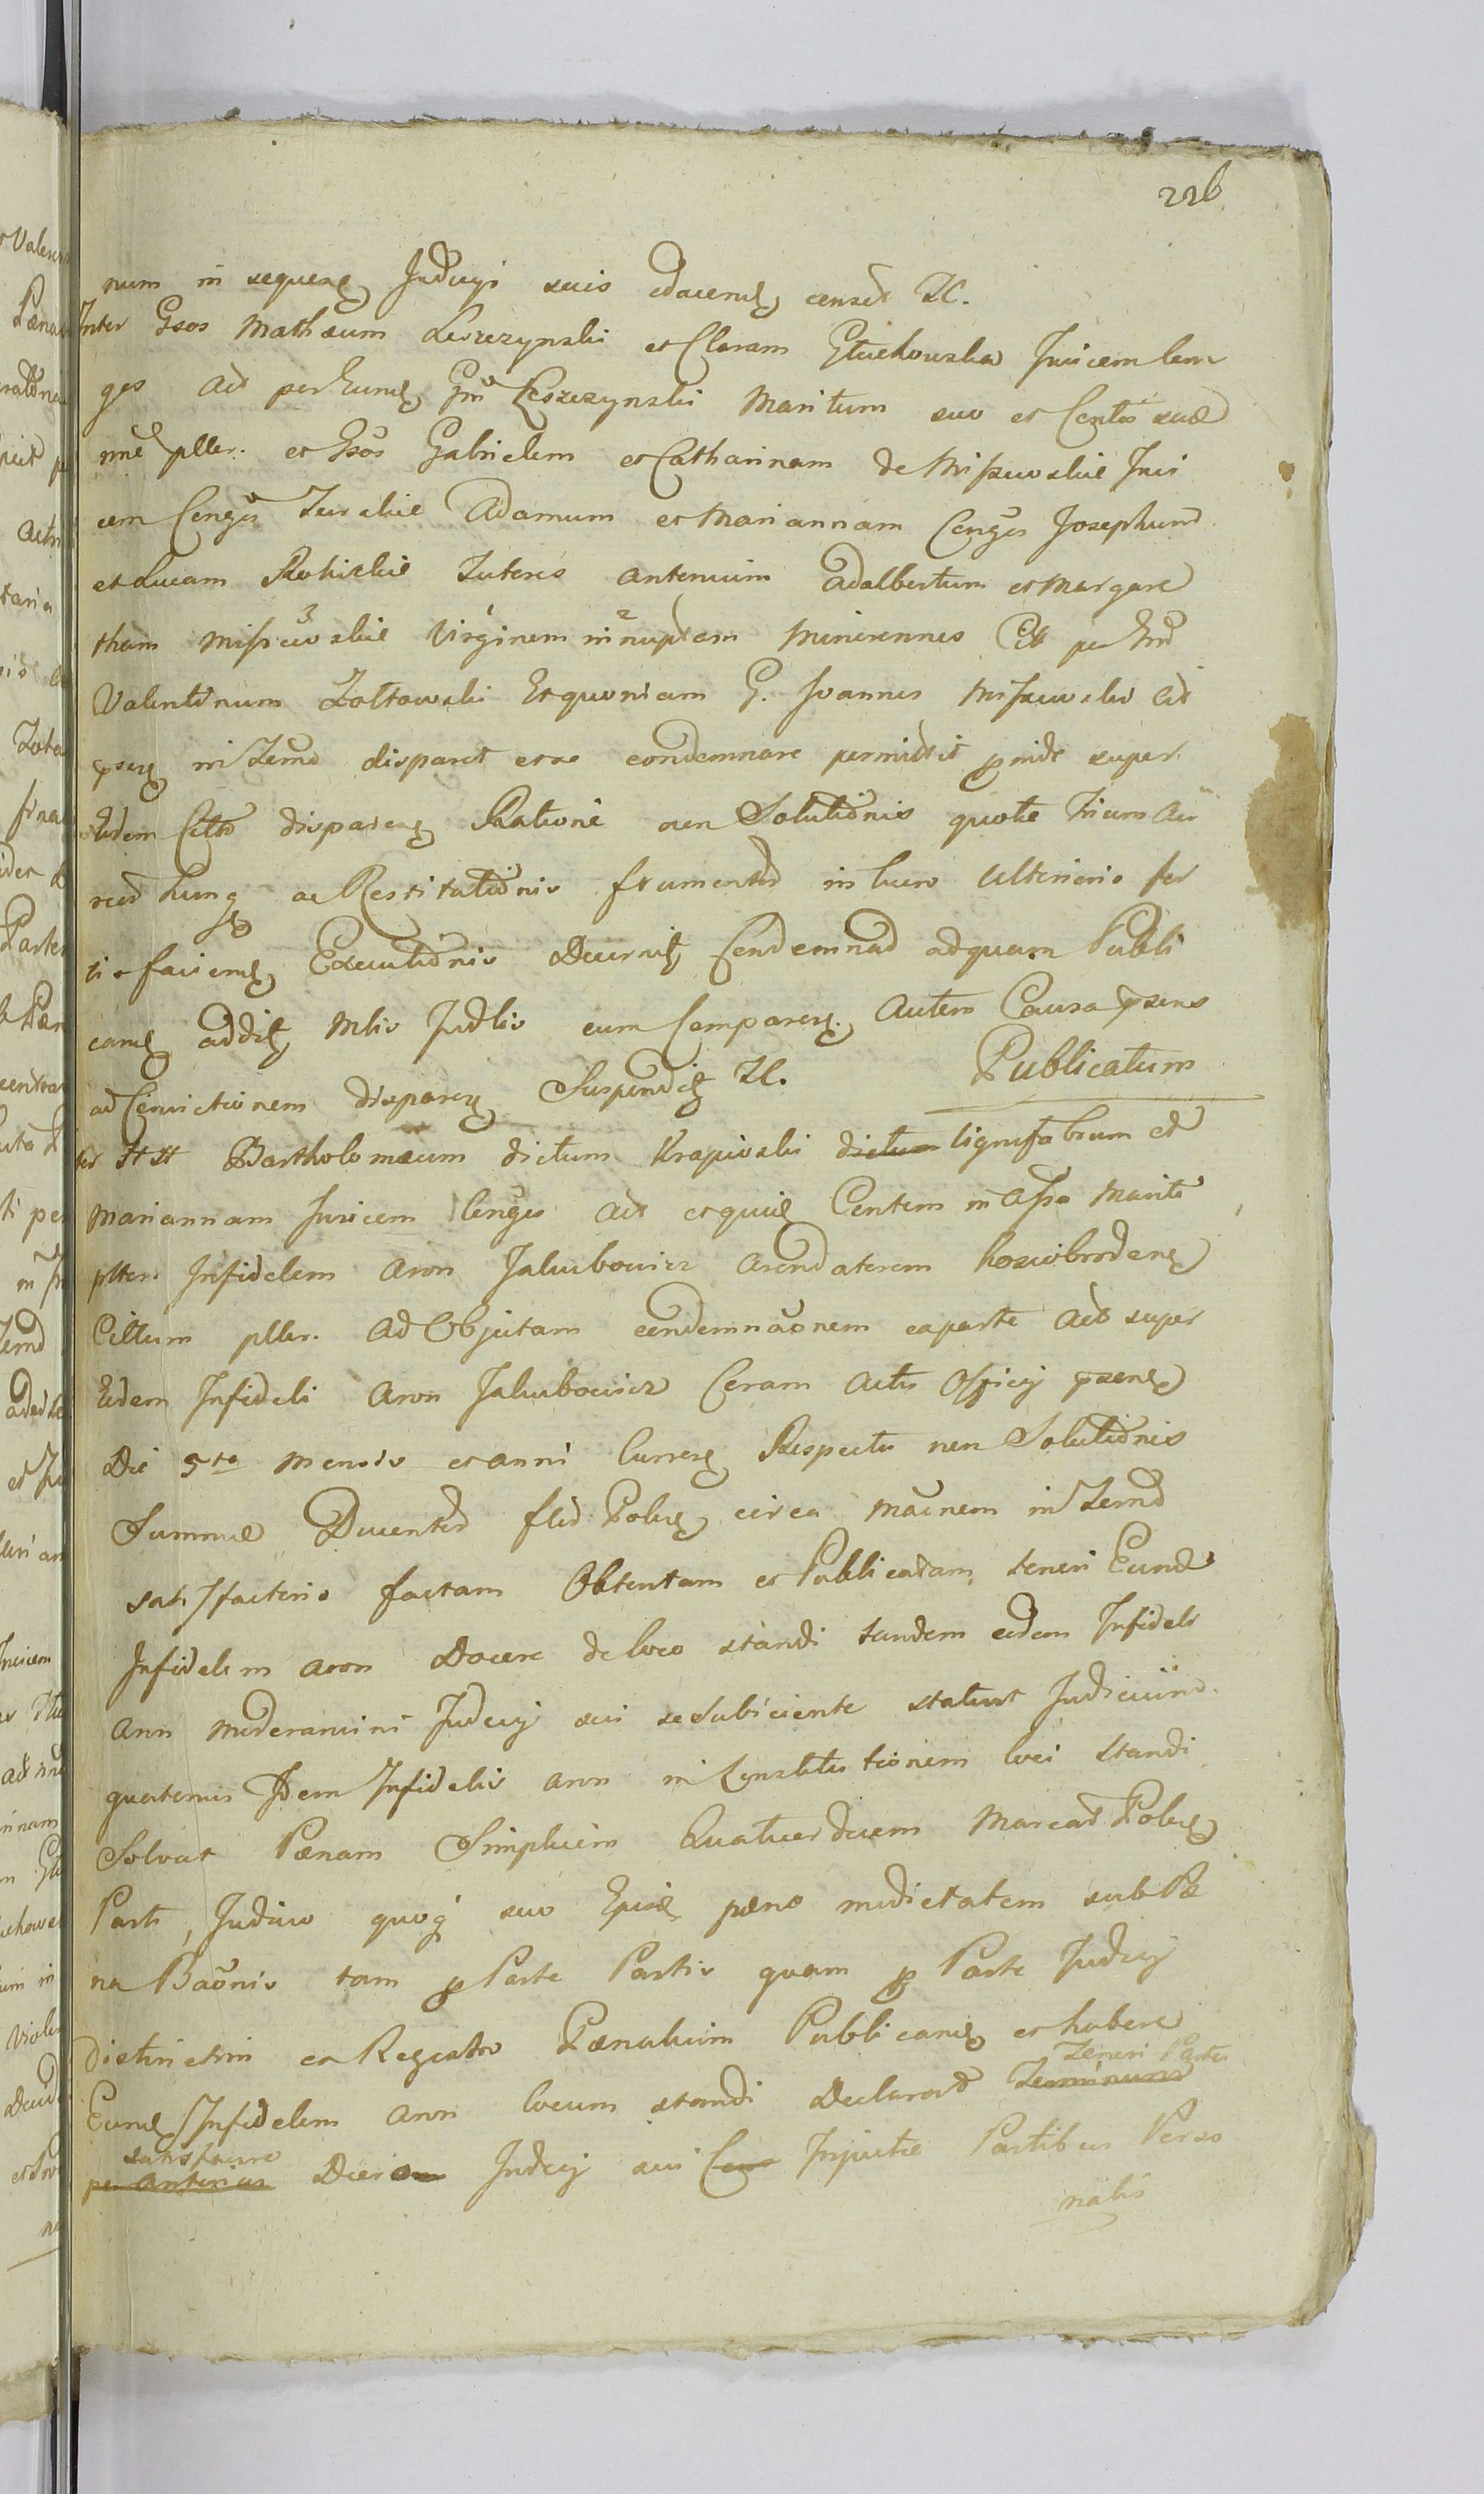 226
num in sequeñ Judicÿ suis educend censet ZC.
Inter Gsos Mathæum Leszczynski et Claram Głuchowska Juicem Con
ges Act per eund Gm Leszczynski Maritum suo et Contis suæ
nne pller. et Gsos Gabrielem et Catharinam de Miszewskie Jui
cem Conges Turskie Adamum et Mariannam Conges Josephum
et Lucam Rokickie Tutores antenuim Adalbertum et Margare
tham Miszewskie Virginem innuptam Minorennes Citt per Gm
Valentinum Zołtowski Et quoniam G. Joannes Miszewski Cit
psens in Termo disparet et se condemnare permittit proinde super
Eodem Citto disparen Ratione non Solutionis quotæ Trium Au
reor Hung ac Restitutionis frumentor in lucro Ulterioris sa
tisfaciend Executionis Decernit Condemnad ad quam Publi
cand addit Mlis Judlis cum Comparen. Autem Causa psens
ad Convictionem disparen Suspendit ZC. Publicatum
Inter Htt Bartholomæum dictum Krapiwski dictum lignifabrum et
Mariannam Juicem Conges Act et quid Contem in Assa Mariti
pller. Infidelem Aron Jakubowicz Arendatorem Kosiobrodens
Cittum pller. Ad Objectam condemnãonem ex parte Act super
Eodem Infideli Aron Jakubowicz Coram Actis Officÿ psens
Die 5ta Mensis et anni Curren Respectu non Solutionis
Summæ Ducentor flor Polon circa Mãnem in Termo
satisfactorio factam Obtentam et Publicatam teneri Eund
Infidelem Aron Docere de loco standi tandem eodem Infideli
Aron Moderamini Judicÿ sui se Subiciente statuit Judicium
quatenus Idem Infidelis Aron in Constitutionem loci Standi
Solvat Pœnam Simplicem Quatuordecem Marcar Polon
Parti, Judicio quoq suo Ejusd pœnæ medietatem sub Pœ
na Bãonis tam p Parte Partis quam p Parte Judicÿ
distinctim ex Registro Pœnalium Publicand et habere
Eund Infidelem Aron locum standi Declarat Terminum Teneri Partes
per anterius satisfacere Decreto Judicÿ sui Injuctæ Partibus Perso
nalis